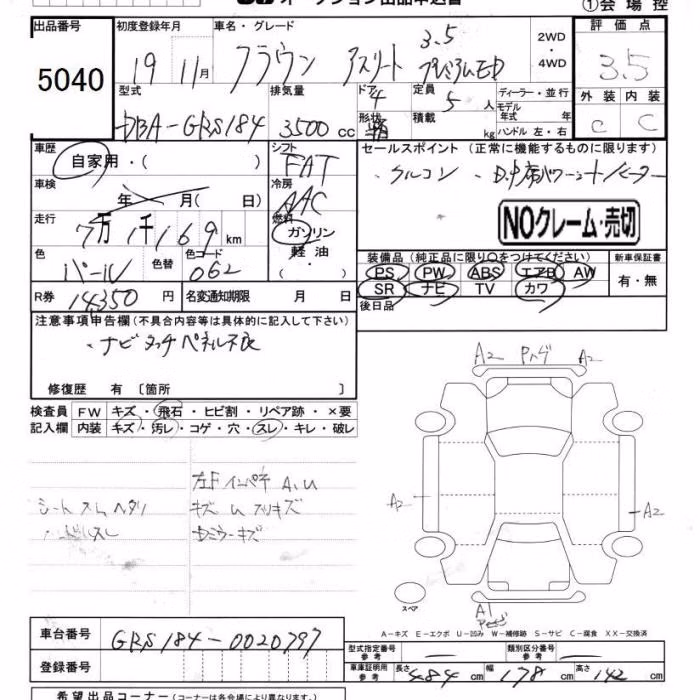 オークション出品申込書
①会場控
出品番号 初度登録年月 車名・グレード 評価点
5040 19年 11月 クラウン アスリート 3.5 プレミアムED 2WD・4WD 3.5
型式 排気量 ドア 4 形状 定員 5人 積載 kg ディーラー・並行 モデル年式 年 ハンドル 左・右 外装 内装
DBA-GRS184 3500cc C C
車歴 シフト セールスポイント (正常に機能するものに限ります)
自家用・( ) FAT
車検 年 月( 日) 冷房 AAC
NOクレーム・売切
走行 7万1千169km 燃料 ガソリン 軽油・( )
色 パール 色替 色コード 062
装備品(純正品に限り○をつけてください) 新車保証書
PS PW ABS エアB AW 有・無
SR ナビ TV カワ
R券 14,350円 名変通知期限 月 日 後日品
注意事項申告欄(不具合内容等は具体的に記入して下さい)
・ナビタッチペネル不良
修復歴 有〔箇所 〕
検査員 FW キズ・飛石・ヒビ割・リペア跡・×要
記入欄 内装 キズ・汚レ・コゲ・穴・スレ・キレ・破レ
A2 A2
A2 A2
A1
スペア
A-キズ E-エクボ U-凹み W-補修跡 S-サビ C-腐食 XX-交換済
車台番号 GRS184-0020797
登録番号
型式指定番号 参考 類別区分番号 参考
車庫証明用 参考 長さ 484cm 幅 178cm 高さ 142cm
希望出品コーナー(コーナーは各会場により異なります。)